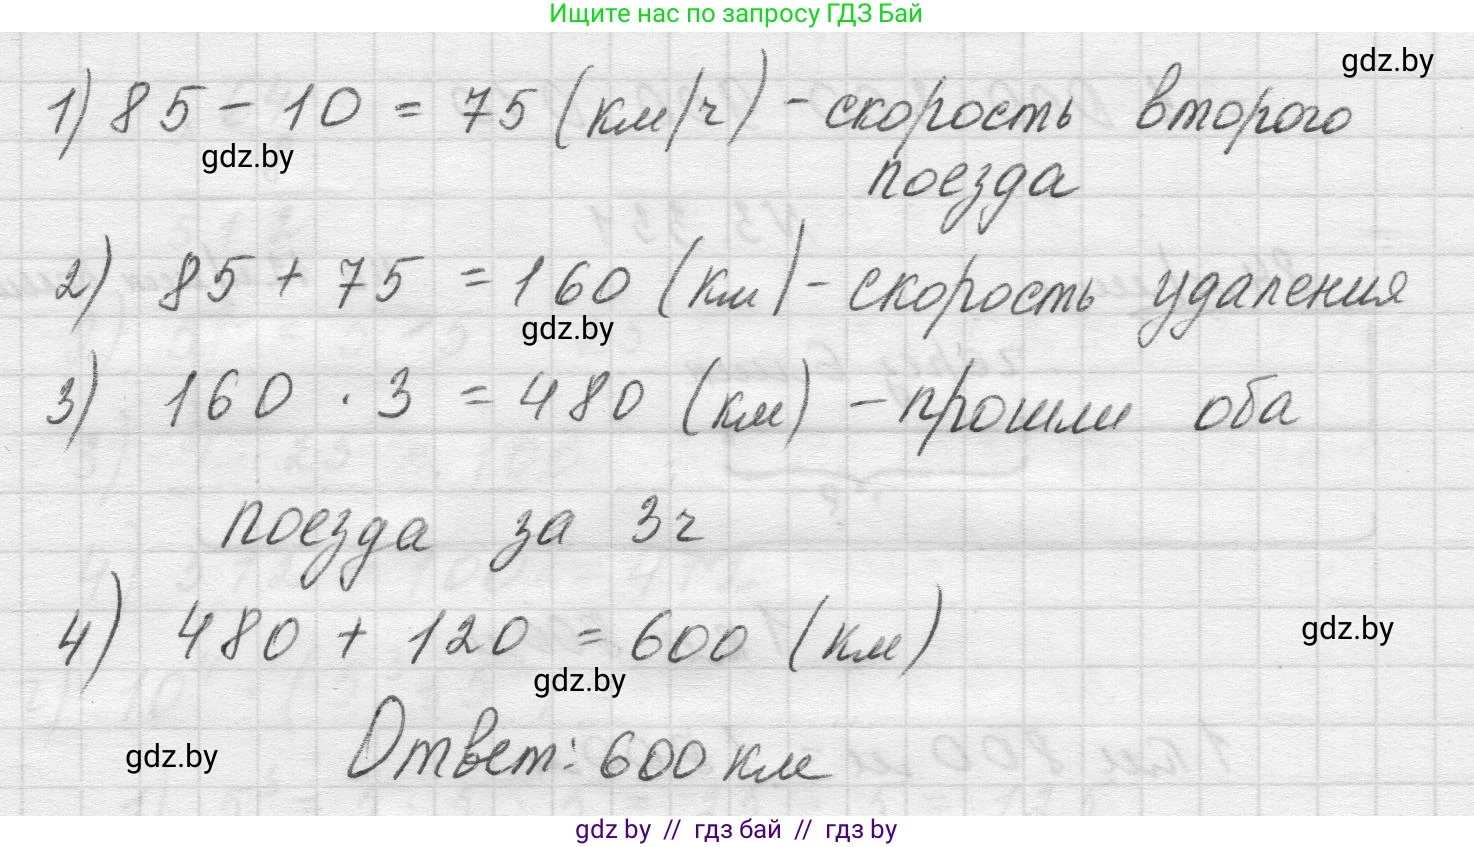 Ищите нас по запросу ГДЗ Бай
gdz.by
1) 85 - 10 = 75 (км/ч) - скорость второго
gdz.by
поезда
2) 85 + 75 = 160 (км) - скорость удаления
gdz.by
3) 160 · 3 = 480 (км) - прошли оба
поезда за 3ч
4) 480 + 120 = 600 (км)
gdz.by
gdz.by
gdz.by
Ответ: 600 км
gdz by // гдз бай // гдз by